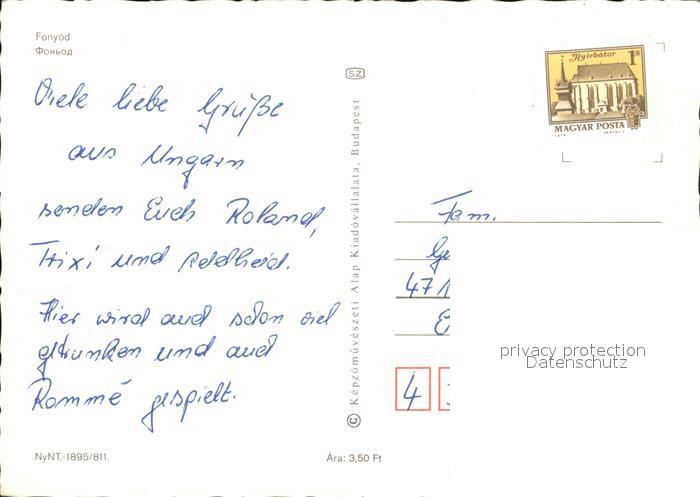 Fonyód
Фоньод
Viele liebe Grüße
aus Ungarn
senden Euch Roland,
Trixi und Adelheid.
Hier wird auch schon viel
getrunken und auch
Rommé gespielt.
NyNT.-1895/811.
Ára: 3,50 Ft
SZ
© Képzőművészeti Alap Kiadóvállalata, Budapest
Nyírbátor 1 Ft
MAGYAR POSTA
Fam.
Ge
471
E
4
privacy protection
Datenschutz